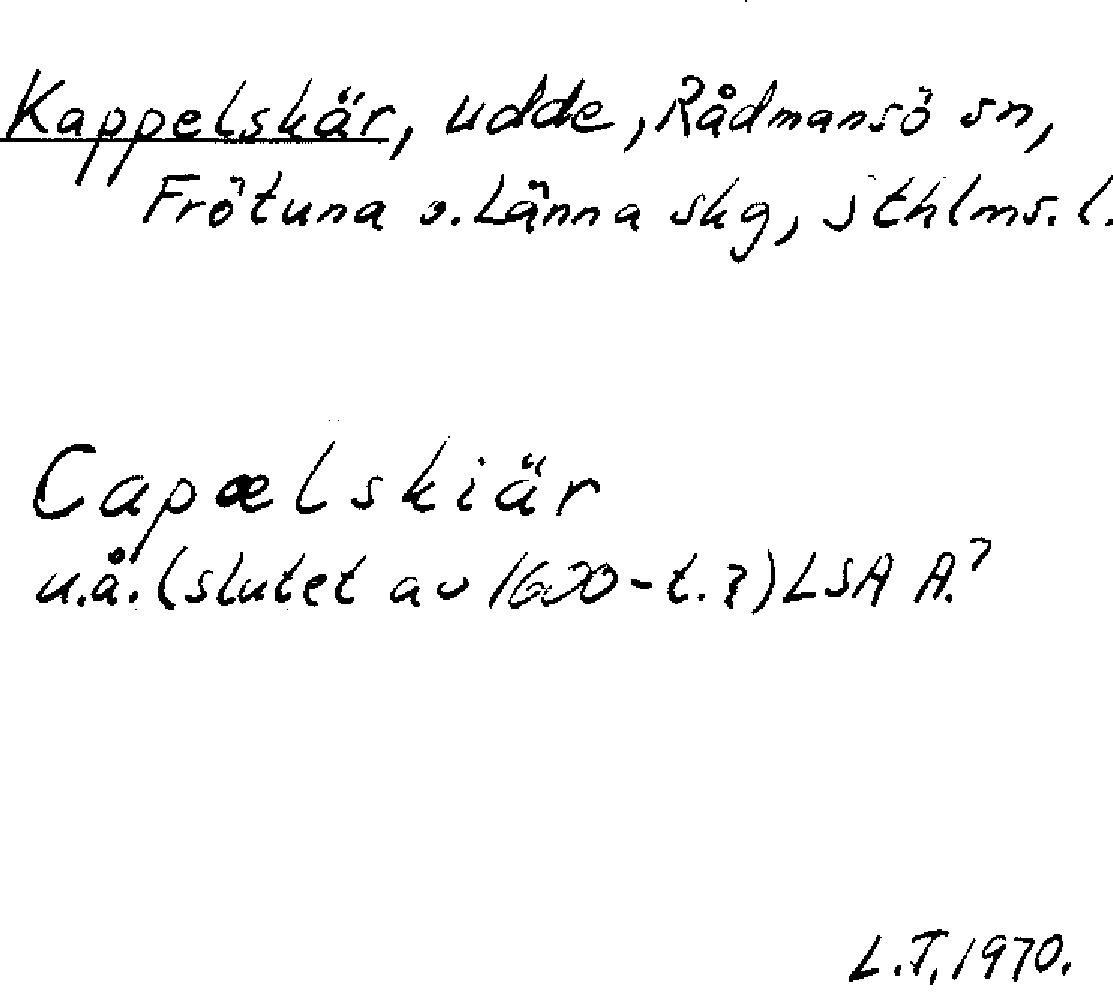 Kappelskär, udde, Rådmansö sn,
Frötuna o. Länna skg, sthlms. l.
Capælskiär
u.å. (slutet av 1600-t.?) LSA A.7
L.T. 1970.